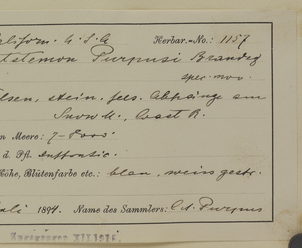 aliforn. U. S. A. Herbar.-No.: 1157
tstemon Purpusi Brandeg
spec. nov.
lsen, stein. fels. Abhänge am
Snow M., Coast R.
m Meere: 7-8000'
d. Pfl.
Höhe, Blütenfarbe etc.: blau, weiss gestr.
uli 1894. Name des Sammlers: C. A. Purpus
XII.1915.